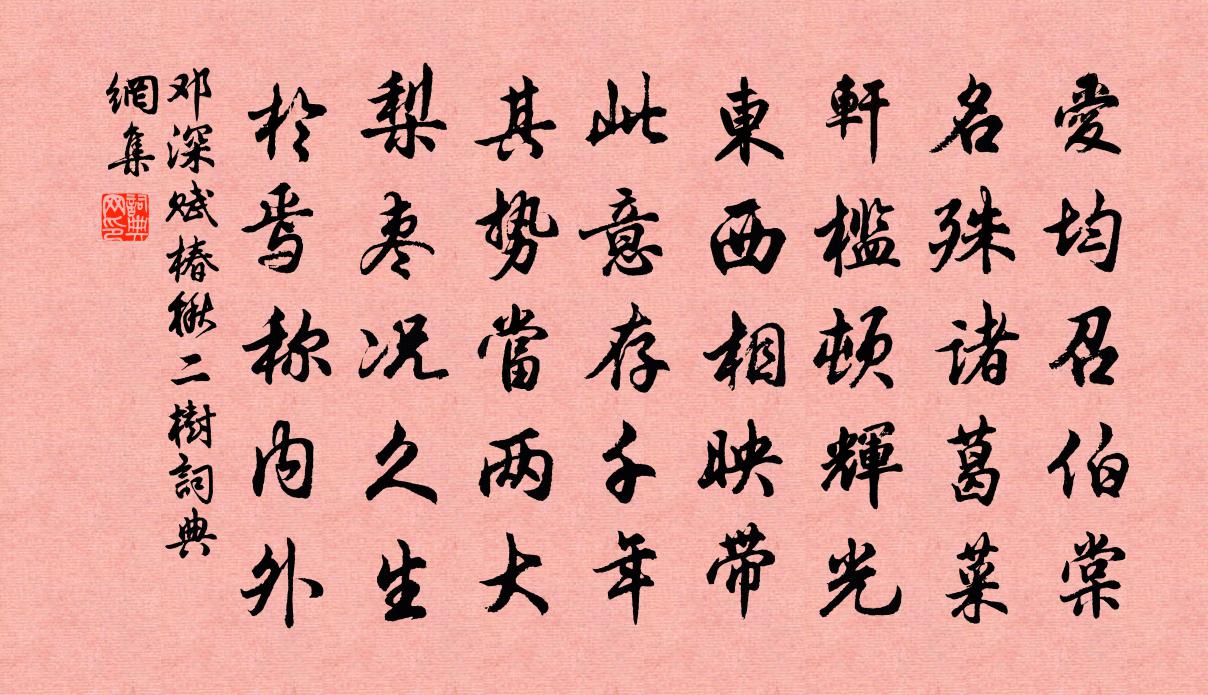 愛均召伯棠
名殊诸葛菜
軒檻頓輝光
東西相映带
此意存千年
其势當两大
梨枣况久生
於焉称内外
邓深赋椿楸二樹詞典
網集
詞典網印